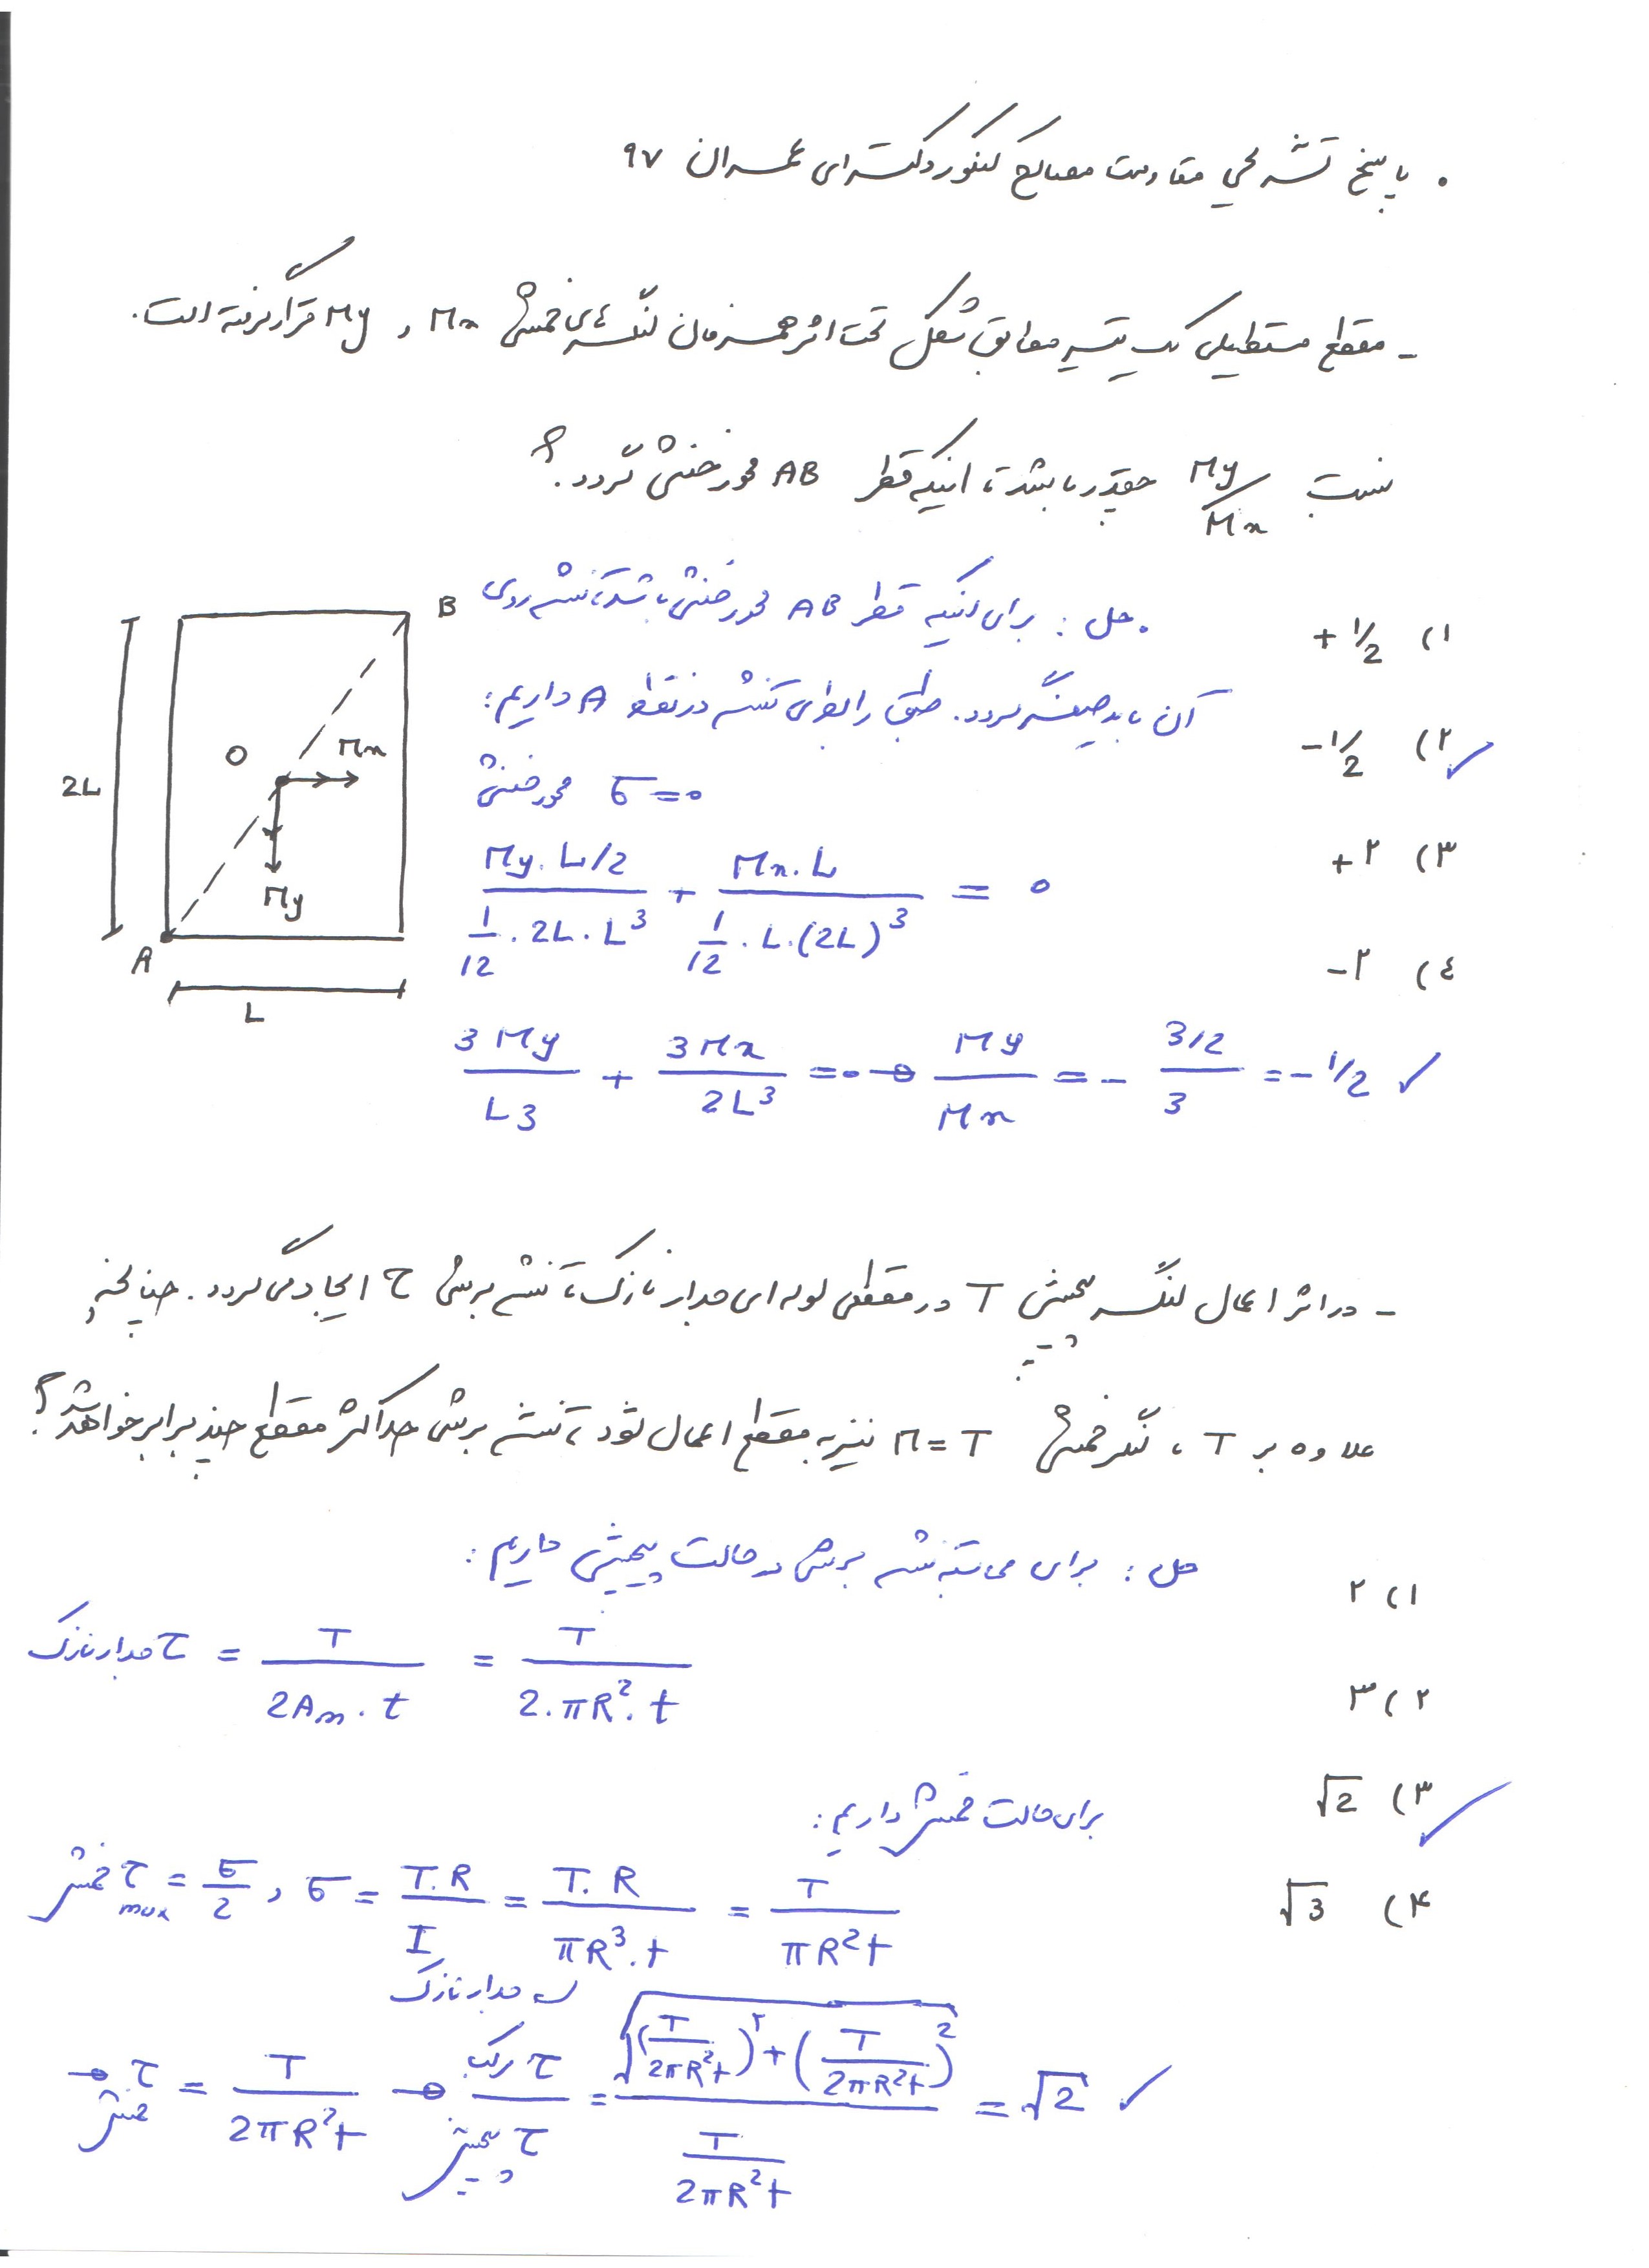 . پاسخ تشریحی مقاومت مصالح کنکور دکترای عمران ۹۷
- مقطع مستطیلی یک تیر مطابق شکل تحت اثر همزمان لنگرهای خمشی Mx و My قرار گرفته است.
نسبت My/Mx چقدر باشد تا اینکه قطر AB محور خنثی گردد؟
۱) +1/2
۲) -1/2 ✓
۳) +۲
٤) -۲
B
O
Mx
My
2L
A
L
. حل: برای اینکه قطر AB محور خنثی باشد تا تنش روی
آن باید صفر گردد. طبق رابطه‌ی تنش در نقطه A داریم:
محور خنثی σ = ۰
My.L/2 / 1/12 . 2L . L^3 + Mx.L / 1/12 . L.(2L)^3 = ۰
3My / L3 + 3Mx / 2L^3 = ۰ → My / Mx = - 3/2 / 3 = -1/2 ✓
- در اثر اعمال لنگر پیچشی T در مقطع لوله ای جدار نازک، تنش برشی τ ایجاد می گردد. چنانچه
علاوه بر T، لنگر خمشی M=T نیز به مقطع اعمال شود، تنش برشی حداکثر مقطع چند برابر خواهد شد؟
۱) ۲
۲) ۳
۳) √2 ✓
۴) √3
حل: برای محاسبه تنش برشی در حالت پیچش داریم:
τ جدار نازک = T / 2Am.t = T / 2.πR^2.t
برای حالت خمش داریم:
τ max خمش = σ/2 , σ = T.R / I = T.R / πR^3.t = T / πR^2t
جدار نازک
→ τ خمش = T / 2πR^2t → τ مرکب / τ پیچش = √((T/2πR^2t)^۲ + (T/2πR^2t)^2) / T/2πR^2t = √2 ✓